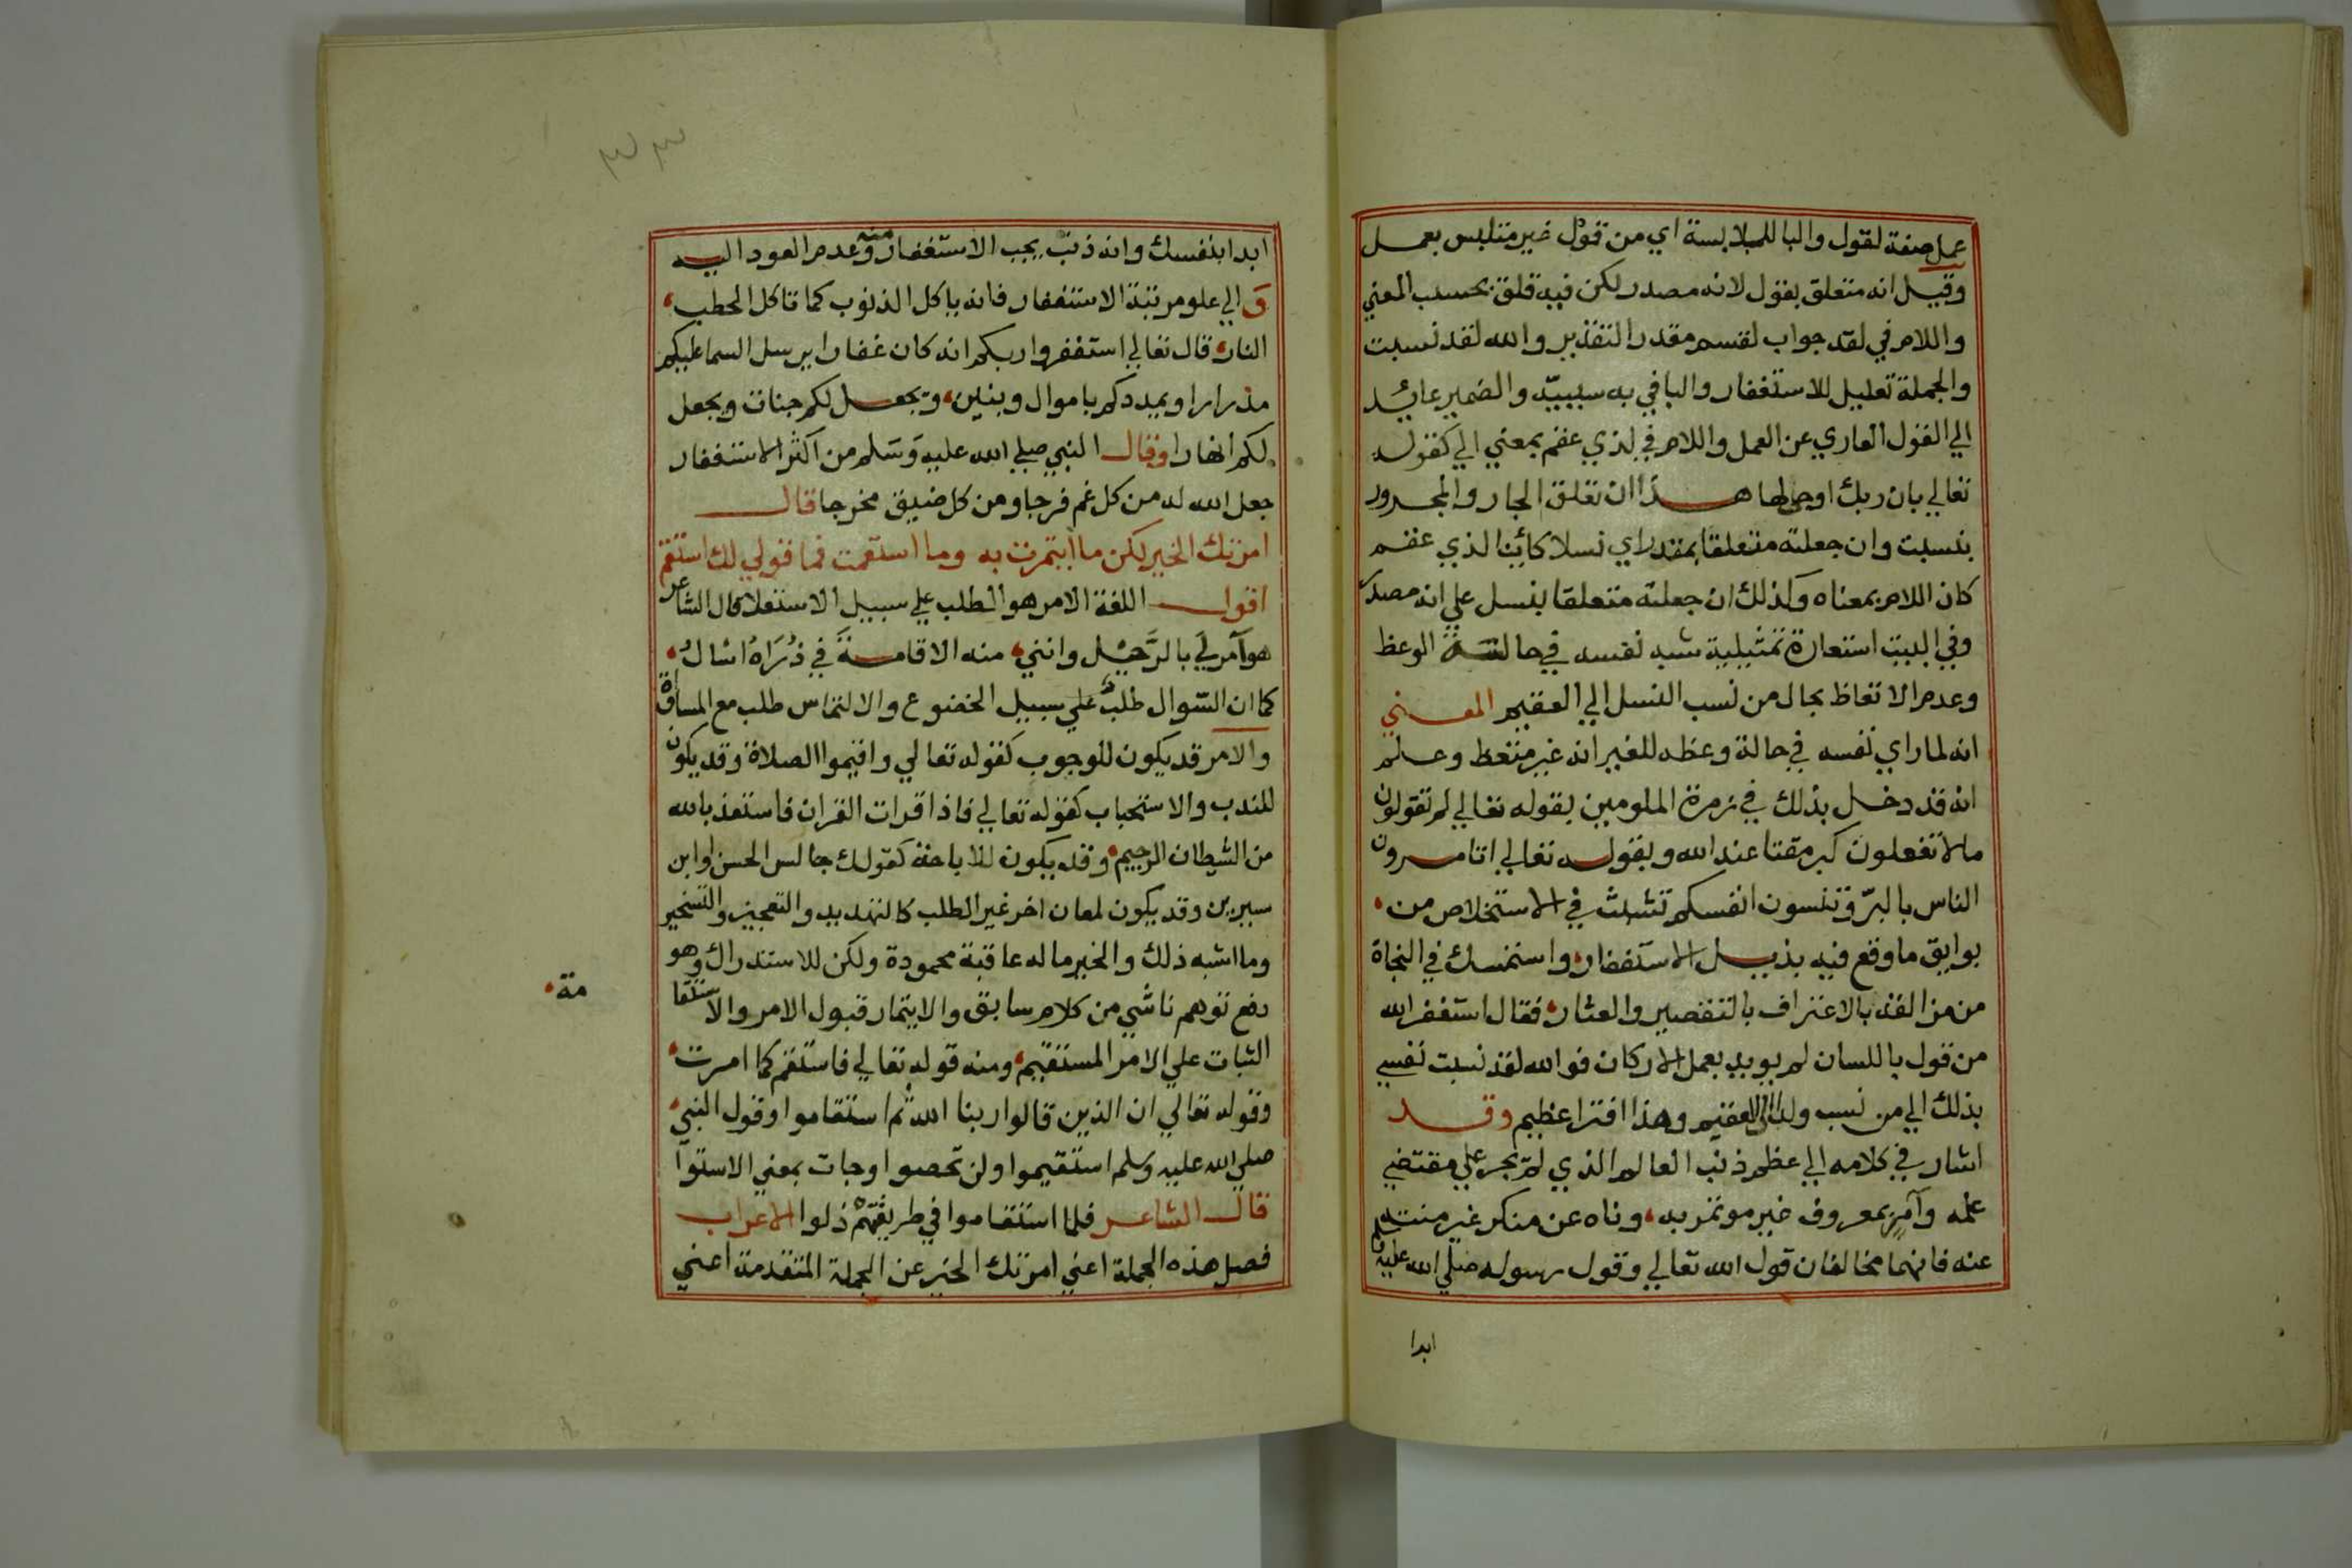 عمل صفة لقول والبا للملابسة اي من قول غير متلبس بعمل
وقيل انه متعلق بقول لانه مصدر لكن فيه قلق بحسب المعني
واللام في لقد جواب لقسم مقدر التقدير والله لقد نسبت
والجملة تعليل للاستغفار والبا في به سببيّة والضمير عائد
الي القول العاري عن العمل واللام في لذي عقم بمعني الي كقوله
تعالي بان ربك اوحي لها هذا ان تعلق الجار والمجرور
بنسبت وان جعلته متعلقا بمقدر اي نسلا كائنا لذي عقم
كان اللام بمعناه وكذلك ان جعلته متعلقا بنسل علي انه مصدر
وفي البيت استعارة تمثيلية شبه نفسه في حالة الوعظ
وعدم الاتعاظ بحال من نسب النسل الي العقيم المعني
انه لما راي نفسه في حالة وعظه للغير انه غير متعظ وعلم
انه قد دخل بذلك في زمرة الملومين بقوله تعالي لم تقولون
مالا تفعلون كبر مقتا عند الله وبقوله تعالي اتامرون
الناس بالبرّ وتنسون انفسكم تشبث في الاستخلاص من
بوايق ما وقع فيه بذيل الاستغفار واستمسك في النجاة
من مزالقه بالاعتراف بالتقصير والعثار فقال استغفر الله
من قول باللسان لم يويد بعمل الاركان فوالله لقد نسبت نفسي
بذلك الي من نسب ولدا الي العقيم وهذا افترا عظيم وقد
اشار في كلامه الي عظم ذنب العالم الذي لم يجر علي مقتضي
علمه وآمرٍ بمعروف غير موتمر به وناه عن منكر غير منته
عنه فانهما مخالفان قول الله تعالي وقول رسوله صلي الله عليه وسلم
ابدا
ابدا بنفسك وانه ذنب يجب الاستغفار منه وعدم العود اليه
وَالي علو مرتبة الاستغفار فانه ياكل الذنوب كما تاكل الحطب
النار قال تعالي استغفروا ربكم انه كان غفارا يرسل السما عليكم
مدرارا ويمددكم باموال وبنين ويجعل لكم جنات ويجعل
لكم انهارا وقال النبي صلي الله عليه وسَلم من اكثر الاستغفار
جعل الله له من كل غم فرجا ومن كل ضيق مخرجا قال
امرتك الخير لكن ما ايتمرت به وما استقمت فما قولي لك استقم
اقول اللغة الامر هو الطلب علي سبيل الاستعلا قال الشاعر
هو آمر لي بالرَّحيل وانني منه الاقامةَ في ذُرَاهُ اسْالُ
كما ان السّوال طلبٌ علي سبيل الخضوع والالتماس طلب مع المساواة
والامر قد يكون للوجوب كقوله تعالي واقيموا الصلاة وقد يكون
للندب والاستحباب كقوله تعالي فاذا قرات القران فاستعذ بالله
من الشيطان الرجيم وقد يكون للاباحة كقولك جالس الحسن او ابن
سيرين وقد يكون لمعان اخر غير الطلب كالتهديد والتعجيز والتسخير
وما اشبه ذلك والخير ماله عاقبة محمودة ولكن للاستدراك وهو
رفع توهم ناشي من كلام سابق والايتمار قبول الامر والاستقا
مة
الثبات علي الامر المستقيم ومنه قوله تعالي فاستقم كما امرت
وقوله تعالي ان الذين قالوا ربنا الله ثم استقاموا وقول النبي
صلي الله عليه وسلم استقيموا ولن تحصوا وجات بمعني الاستوآ
قال الشاعر فلما استقاموا في طريقتهمْ ذلوا الاعراب
فصل هذه الجملة اعني امرتك الخير عن الجملة المتقدمة اعني